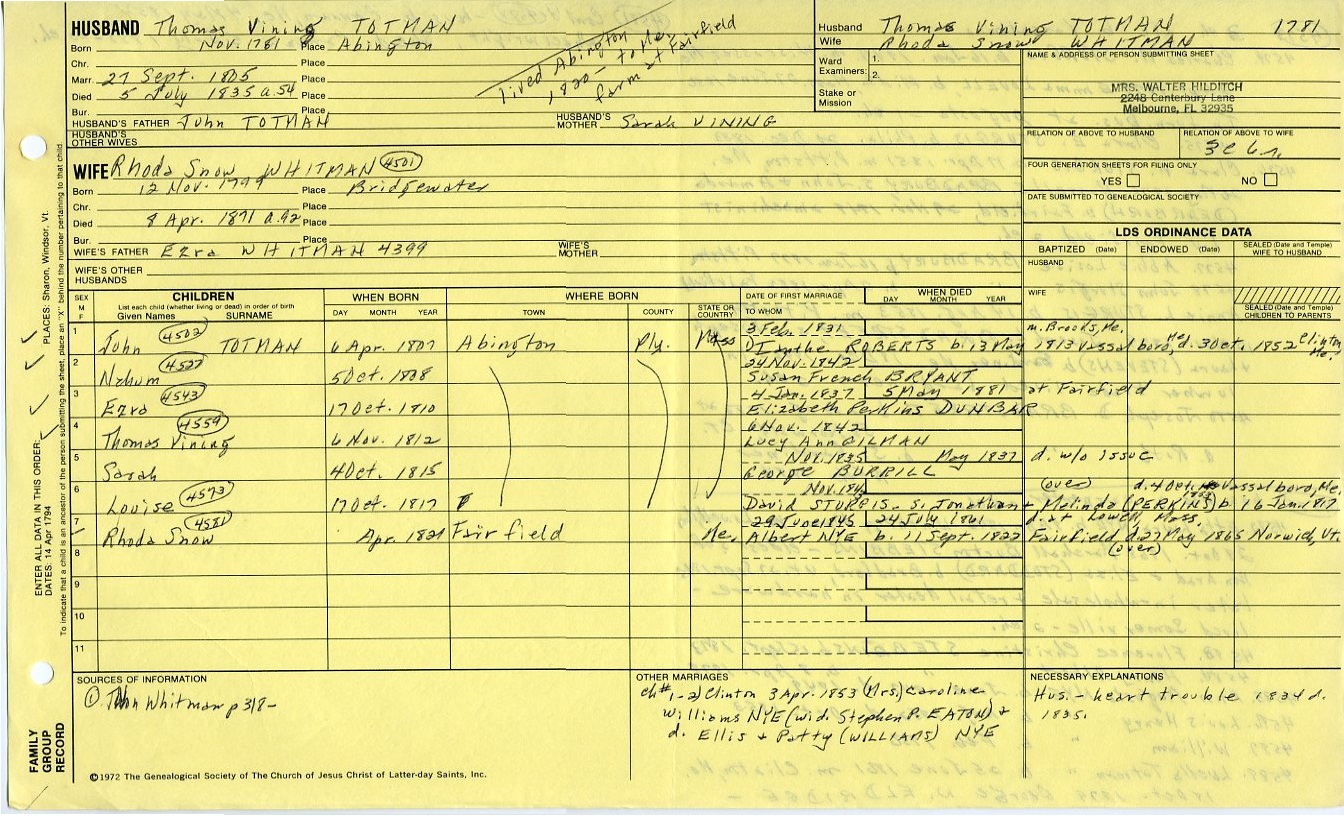 HUSBAND Thomas Vining TOTMAN
Born Nov. 1781 Place Abington
Chr. Place
Marr. 27 Sept. 1805 Place
Died 5 July 1835 a.54 Place
Bur. Place
HUSBAND'S FATHER John TOTMAN HUSBAND'S MOTHER Sarah VINING
HUSBAND'S OTHER WIVES
lived Abington
1820 - to Me.
farm at Fairfield
Husband Thomas Vining TOTMAN 1781
Wife Rhoda Snow WHITMAN
Ward Examiners: 1. 2.
Stake or Mission
NAME & ADDRESS OF PERSON SUBMITTING SHEET
MRS. WALTER HILDITCH
2248 Canterbury Lane
Melbourne, FL 32935
RELATION OF ABOVE TO HUSBAND RELATION OF ABOVE TO WIFE
FOUR GENERATION SHEETS FOR FILING ONLY
YES NO
DATE SUBMITTED TO GENEALOGICAL SOCIETY
LDS ORDINANCE DATA
BAPTIZED (Date) ENDOWED (Date) SEALED (Date and Temple) WIFE TO HUSBAND
HUSBAND
WIFE
SEALED (Date and Temple) CHILDREN TO PARENTS
WIFE Rhoda Snow WHITMAN 4501
Born 12 Nov. Place Bridgewater
Chr. Place
Died 8 Apr. 1871 a.92 Place
Bur. Place
WIFE'S FATHER Ezra WHITMAN 4399 WIFE'S MOTHER
WIFE'S OTHER HUSBANDS
SEX M F CHILDREN WHEN BORN WHERE BORN DATE OF FIRST MARRIAGE WHEN DIED
List each child (whether living or dead) in order of birth
Given Names SURNAME DAY MONTH YEAR TOWN COUNTY STATE OR COUNTRY TO WHOM DAY MONTH YEAR
1 4502 3 Feb. 1831 m. Brooks, Me.
John TOTMAN 6 Apr. 1807 Abington Ply. Mass Dianthe ROBERTS b. 13 May 1813 Vassalboro, Me. d. 3 Oct. 1852 Clinton Me.
2 4527 24 Nov. 1842
Nahum 5 Oct. 1808 Susan French BRYANT
3 4543 4 Jan. 1837 5 May 1881 at Fairfield
Ezra 17 Oct. 1810 Elizabeth Perkins DUNBAR
4 4559 6 Nov. 1842
Thomas Vining 6 Nov. 1812 Lucy Ann GILMAN
5 Nov. 1835 May 1837 d. w/o issue
Sarah 4 Oct. 1815 George BURRILL
6 4573 Nov. (over) d. 4 Oct. Vassalboro, Me.
Louise 17 Oct. 1817 David STURGIS - s. Jonathan + Melinda (PERKINS) b. 16 Jan. 1817
7 4581 29 June 1845 24 July 1861 d. at Lowell, Mass.
Rhoda Snow Apr. 1821 Fairfield Me. Albert NYE b. 11 Sept. 1822 Fairfield d. 27 May 1865 Norwich, Vt.
(over)
8
9
10
11
SOURCES OF INFORMATION
① John Whitman p 318-
OTHER MARRIAGES
ch #1-2) Clinton 3 Apr. 1853 (Mrs) Caroline
Williams NYE (wid. Stephen P. EATON) +
d. Ellis + Patty (WILLIAMS) NYE
NECESSARY EXPLANATIONS
Hus. - heart trouble 1834 d.
1835.
©1972 The Genealogical Society of The Church of Jesus Christ of Latter-day Saints, Inc.
FAMILY GROUP RECORD
ENTER ALL DATA IN THIS ORDER:
DATES: 14 Apr 1794
PLACES: Sharon, Windsor, Vt.
To indicate that a child is an ancestor of the person submitting the sheet, place an "X" behind the number pertaining to that child.